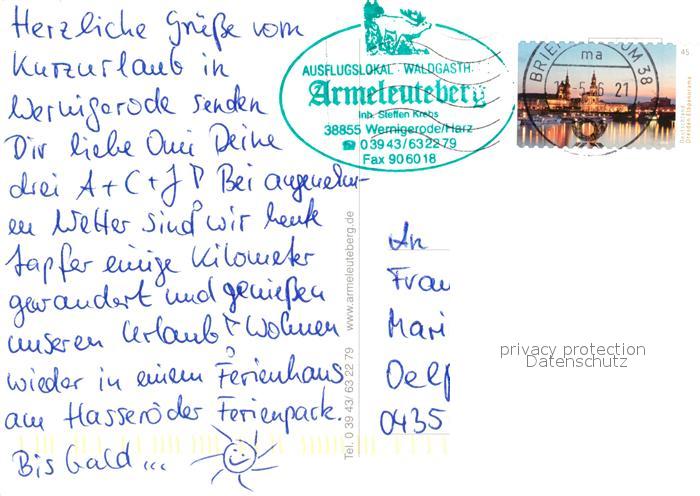 Herzliche Grüße vom
Kurzurlaub in
Wernigerode senden
Dir liebe Omi Deine
drei A+C+J! Bei angenehm-
en Wetter sind wir heute
tapfer einige Kilometer
gewandert und genießen
unseren Urlaub! Wohnen
wieder in einem Ferienhaus
am Hasseröder Ferienpark.
Bis bald...
AUSFLUGSLOKAL · WALDGASTH.
Armeleuteberg
Inh. Steffen Krebs
38855 Wernigerode/Harz
☎ 0 39 43/63 22 79
Fax 90 60 18
Tel. 0 39 43/ 63 22 79 www.armeleuteberg.de
BRIEF UM 38
ma
21
45
Deutschland
Dresden Elbpanorama
An
Frau
Mari
Oelf
0435
privacy protection
Datenschutz